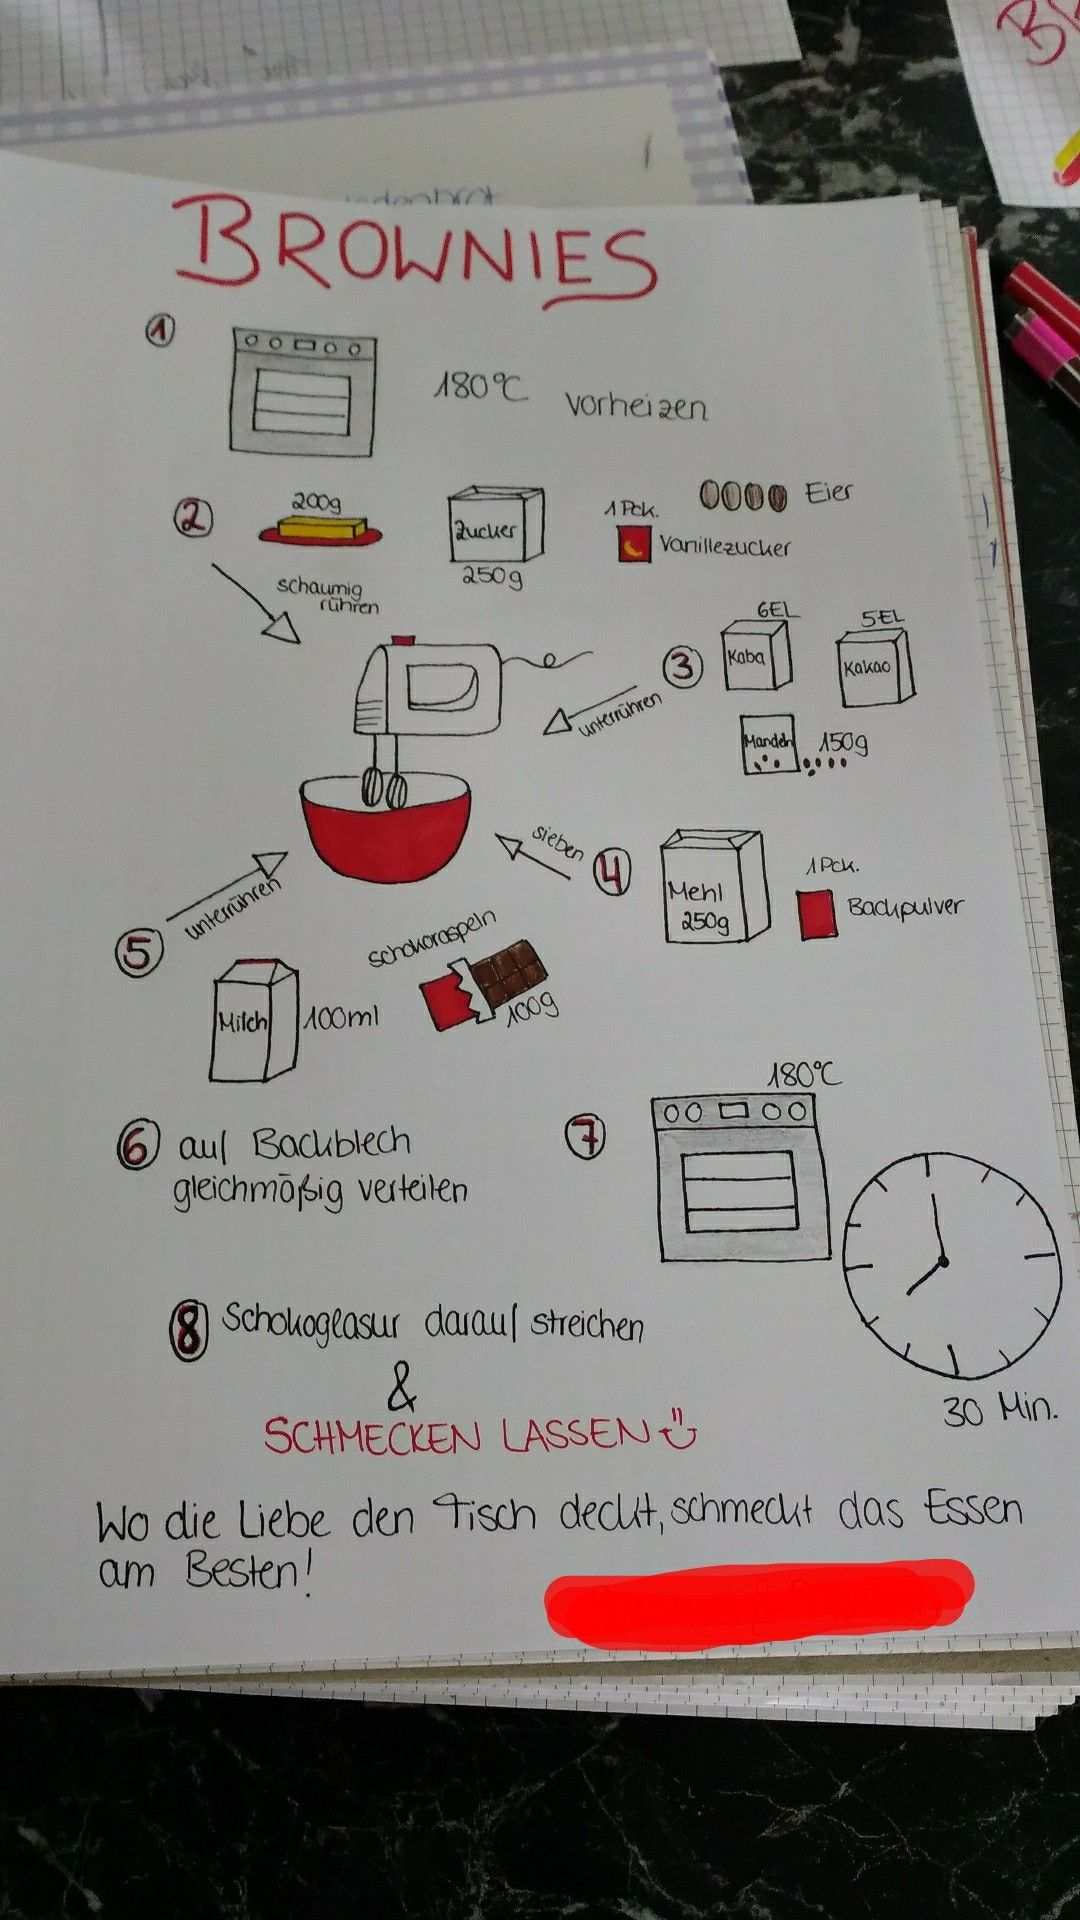 BROWNIES
1
180°C vorheizen
2
200g
Zucker
250g
1 Pck.
Vanillezucker
Eier
schaumig
rühren
3
6EL
Kaba
5EL
Kakao
Mandeln 150g
unterrühren
4
sieben
Mehl
250g
1 Pck.
Backpulver
5
unterrühren
Milch 100ml
Schokoraspeln
100g
6 auf Backblech
gleichmäßig verteilen
7
180°C
30 Min.
8 Schokoglasur darauf streichen
&
SCHMECKEN LASSEN
Wo die Liebe den Tisch deckt, schmeckt das Essen
am Besten!